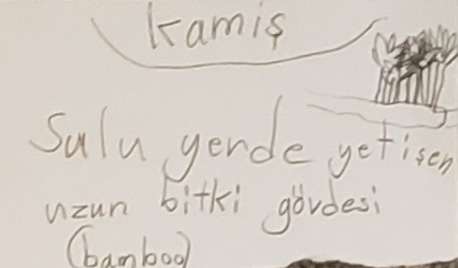 kamiş
Sulu yerde yetişen
uzun bitki gövdesi
(bamboo)